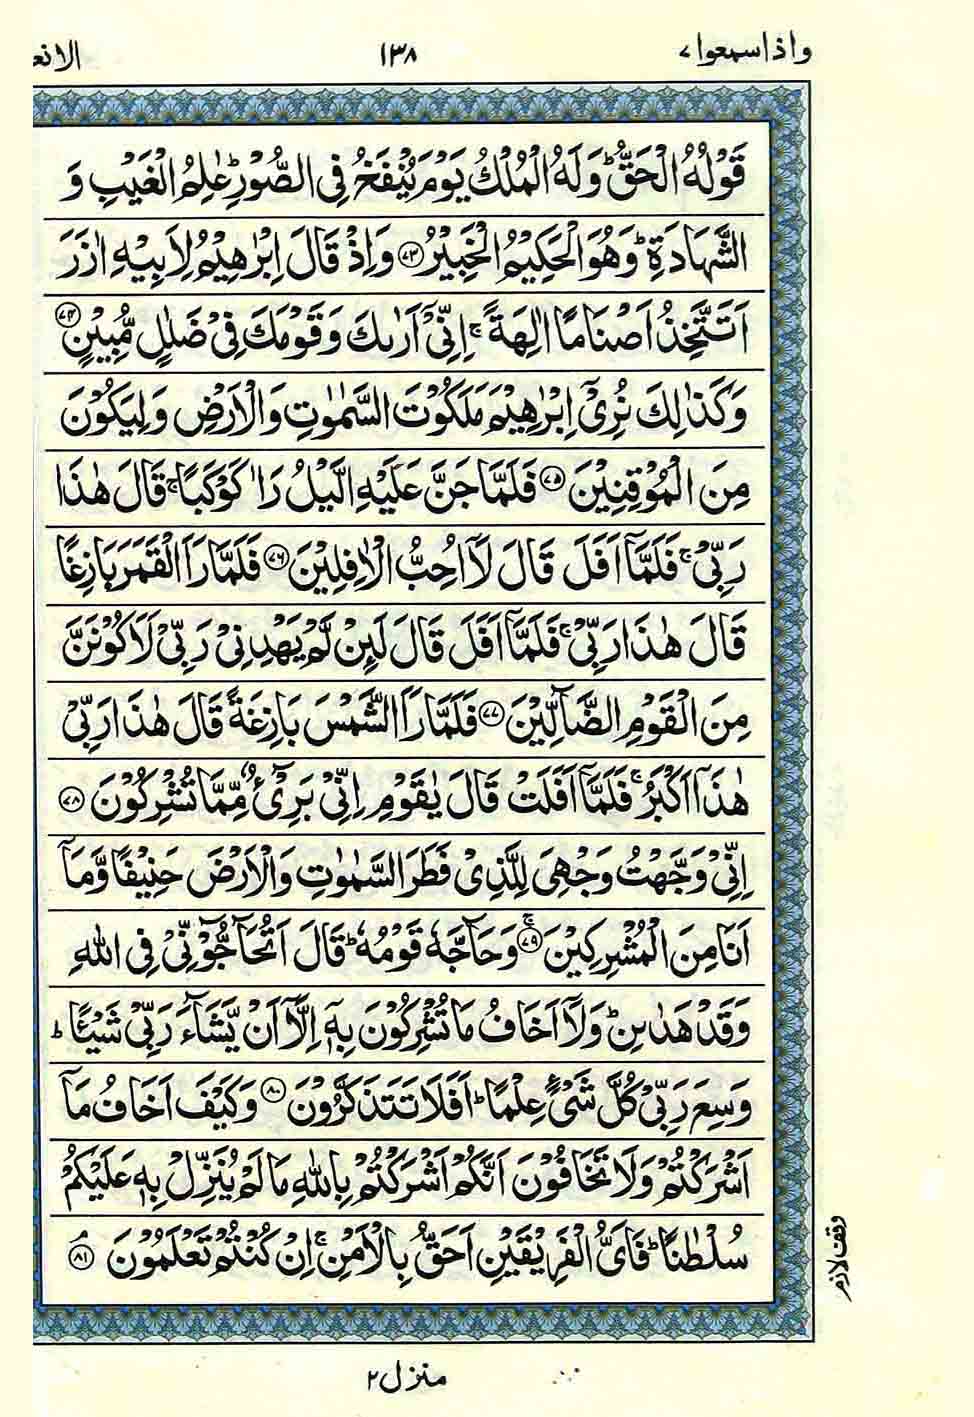 واذاسمعوا ٧
١٣٨
الانع
قَوْلُهُ الْحَقُّ ؕ وَلَهُ الْمُلْكُ يَوْمَ يُنْفَخُ فِى الصُّوْرِ ؕ عٰلِمُ الْغَيْبِ وَ
الشَّهَادَةِ ؕ وَهُوَ الْحَكِيْمُ الْخَبِيْرُ ﴿٧٣﴾ وَاِذْ قَالَ اِبْرٰهِيْمُ لِاَبِيْهِ اٰزَرَ
اَتَتَّخِذُ اَصْنَامًا اٰلِهَةً ۚ اِنِّىْۤ اَرٰىكَ وَقَوْمَكَ فِىْ ضَلٰلٍ مُّبِيْنٍ ﴿٧٤﴾
وَكَذٰلِكَ نُرِىْۤ اِبْرٰهِيْمَ مَلَكُوْتَ السَّمٰوٰتِ وَالْاَرْضِ وَلِيَكُوْنَ
مِنَ الْمُوْقِنِيْنَ ﴿٧٥﴾ فَلَمَّا جَنَّ عَلَيْهِ الَّيْلُ رَاٰ كَوْكَبًا ۚ قَالَ هٰذَا
رَبِّىْ ۚ فَلَمَّاۤ اَفَلَ قَالَ لَاۤ اُحِبُّ الْاٰفِلِيْنَ ﴿٧٦﴾ فَلَمَّا رَاَ الْقَمَرَ بَازِغًا
قَالَ هٰذَا رَبِّىْ ۚ فَلَمَّاۤ اَفَلَ قَالَ لَئِنْ لَّمْ يَهْدِنِىْ رَبِّىْ لَاَكُوْنَنَّ
مِنَ الْقَوْمِ الضَّآلِّيْنَ ﴿٧٧﴾ فَلَمَّا رَاَ الشَّمْسَ بَازِغَةً قَالَ هٰذَا رَبِّىْ
هٰذَاۤ اَكْبَرُ ۚ فَلَمَّاۤ اَفَلَتْ قَالَ يٰقَوْمِ اِنِّىْ بَرِىْٓءٌ مِّمَّا تُشْرِكُوْنَ ﴿٧٨﴾
اِنِّىْ وَجَّهْتُ وَجْهِىَ لِلَّذِىْ فَطَرَ السَّمٰوٰتِ وَالْاَرْضَ حَنِيْفًا وَّمَاۤ
اَنَا مِنَ الْمُشْرِكِيْنَ ۚ ﴿٧٩﴾ وَحَآجَّهٗ قَوْمُهٗ ؕ قَالَ اَتُحَآجُّوْٓنِّىْ فِى اللّٰهِ
وَقَدْ هَدٰىنِ ؕ وَلَاۤ اَخَافُ مَا تُشْرِكُوْنَ بِهٖۤ اِلَّاۤ اَنْ يَّشَآءَ رَبِّىْ شَيْـًٔا ؕ
وَسِعَ رَبِّىْ كُلَّ شَىْءٍ عِلْمًا ؕ اَفَلَا تَتَذَكَّرُوْنَ ﴿٨٠﴾ وَكَيْفَ اَخَافُ مَاۤ
اَشْرَكْتُمْ وَلَا تَخَافُوْنَ اَنَّكُمْ اَشْرَكْتُمْ بِاللّٰهِ مَا لَمْ يُنَزِّلْ بِهٖ عَلَيْكُمْ
سُلْطٰنًا ؕ فَاَىُّ الْفَرِيْقَيْنِ اَحَقُّ بِالْاَمْنِ ۚ اِنْ كُنْتُمْ تَعْلَمُوْنَ ۘ ﴿٨١﴾
وقف لازم
منزل ٢